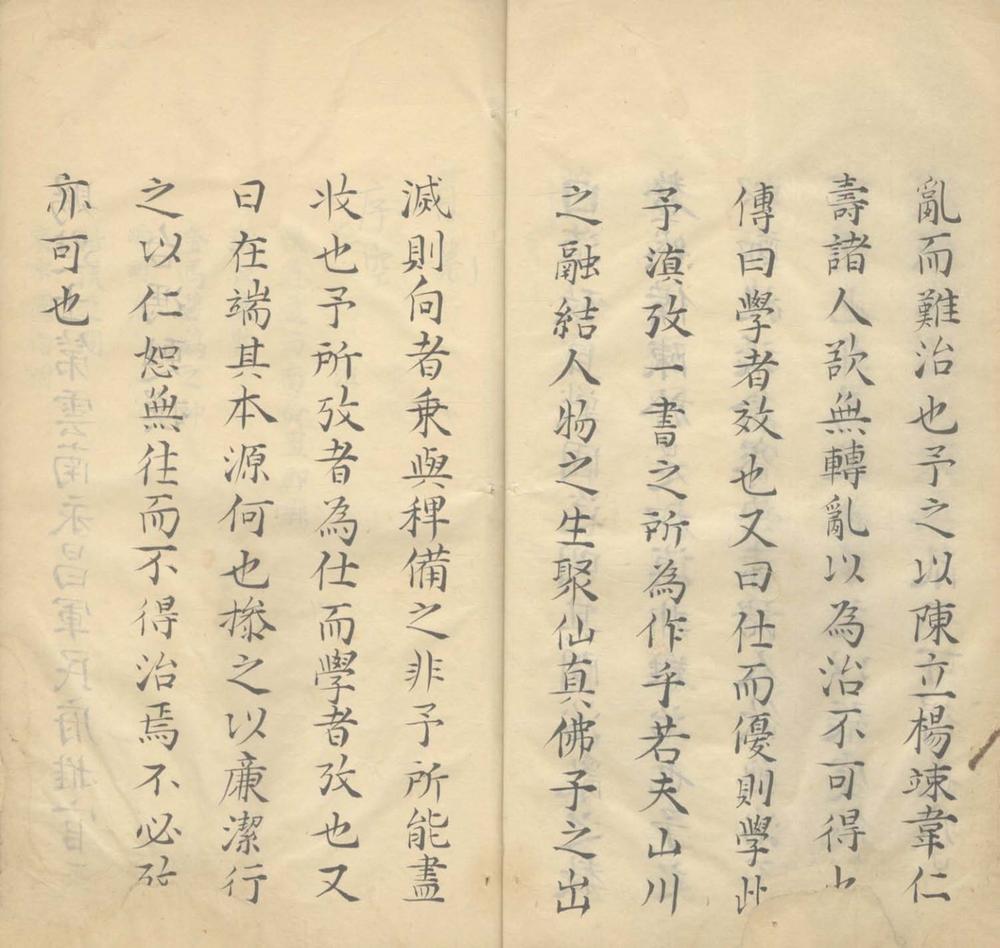 亂而難治也予之以陳立楊竦韋仁
壽諸人欲無轉亂以為治不可得也
傳曰學者效也又曰仕而優則學此
予滇攷一書之所為作乎若夫山川
之融結人物之生聚仙真佛子之出
滅則向者乗與稗備之非予所能盡
收也予所攷者為仕而學者攷也又
曰在端其本源何也摻之以廉潔行
之以仁恕無往而不得治焉不必攷
亦可也